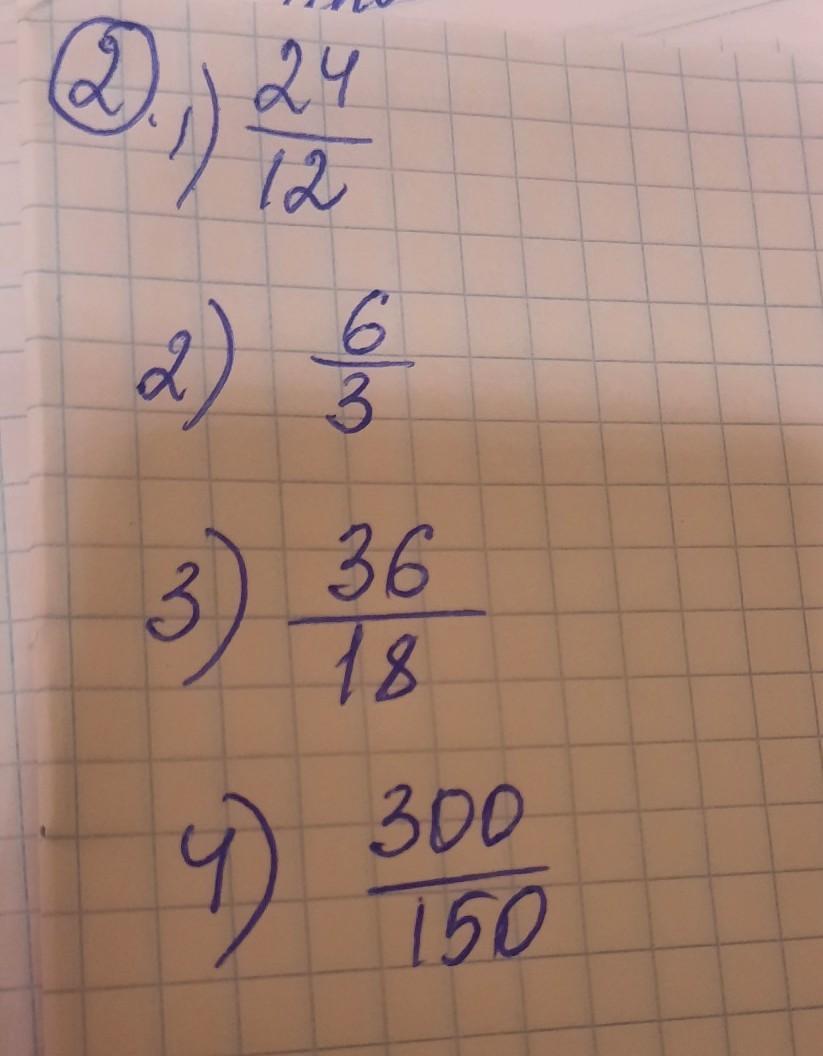 2. 1) 24/12
2) 6/3
3) 36/18
4) 300/150